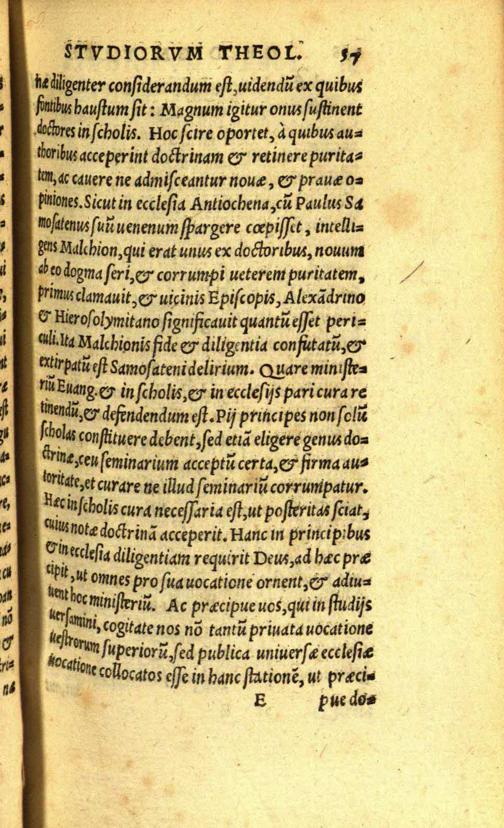 STVDIORVM THEOL. 57
næ diligenter considerandum est, uidendū ex quibus
fontibus haustum sit: Magnum igitur onus sustinent
doctores in scholis. Hoc scire oportet, à quibus au=
thoribus acceperint doctrinam & retinere purita=
tem, ac cauere ne admisceantur nouæ, & prauæ o=
piniones. Sicut in ecclesia Antiochena, cū Paulus Sa
mosatenus suū uenenum spargere cœpisset, intelli=
gens Malchion, qui erat unus ex doctoribus, nouum
ab eo dogma seri, & corrumpi ueterem puritatem,
primus clamauit, & uicinis Episcopis, Alexādrino
& Hierosolymitano significauit quantū esset peri=
culi. Ita Malchionis fide & diligentia confutatū, &
extirpatū est Samosateni delirium. Quare ministe=
riū Euang. & in scholis, & in ecclesijs pari cura re
tinendū, & defendendum est. Pij principes non solū
scholas constituere debent, sed etiā eligere genus do=
ctrinæ, ceu seminarium acceptū certa, & firma au=
toritate, et curare ne illud seminariū corrumpatur.
Hæc in scholis cura necessaria est, ut posteritas sciat,
cuius notæ doctrinā acceperit. Hanc in principibus
& in ecclesia diligentiam requirit Deus, ad hæc præ
cipit, ut omnes pro sua uocatione ornent, & adiu=
uent hoc ministeriū. Ac præcipue uos, qui in studijs
uersamini, cogitate nos nō tantū priuata uocatione
uestrorum superiorū, sed publica uniuersæ ecclesiæ
uocatione collocatos esse in hanc stationē, ut præci=
E pue do=